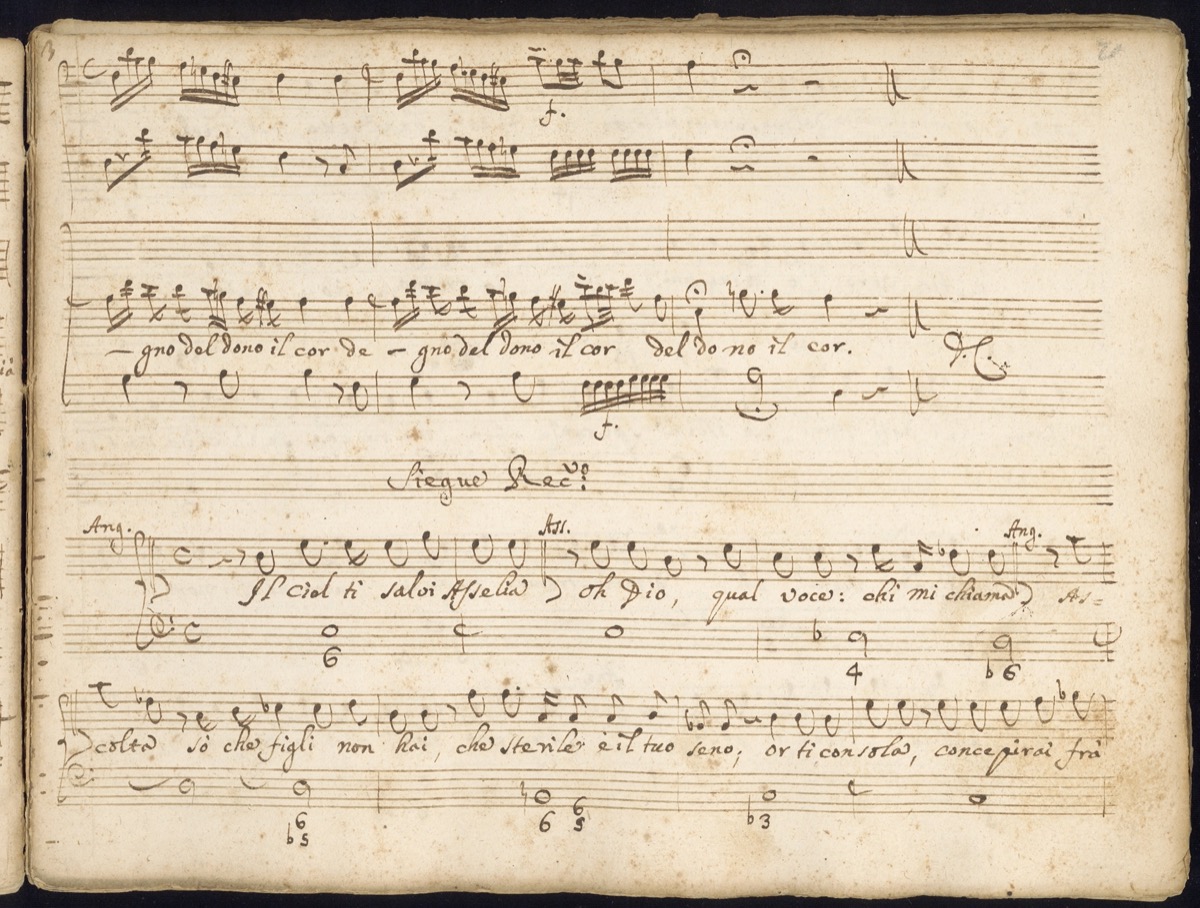 f.
– gno del dono il cor de – gno del dono il cor del dono il cor.
D. C.
f.
Siegue Rec:vo
Ang. Ass. Ang.
Il ciol ti salvi Asselia oh Dio, qual voce: chi mi chiama As=
6 4 b 6
colta sò che figli non hai, che sterile è il tuo seno; or ti consola, concepirai frà
6 6 6
b 5 5 b 3